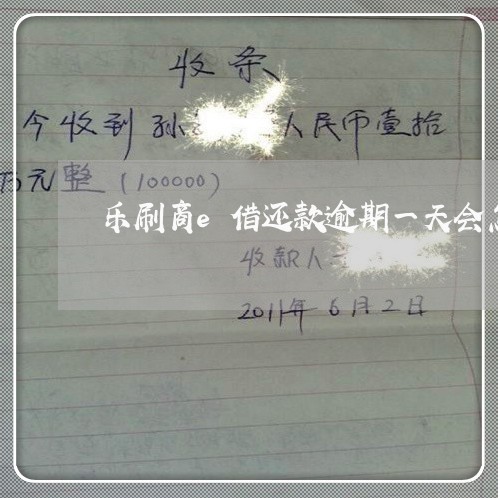 收条
今收到孙 人民币壹拾
万元整(100000)
乐刷商e 借还款逾期一天会
收款人
2011年6月2日